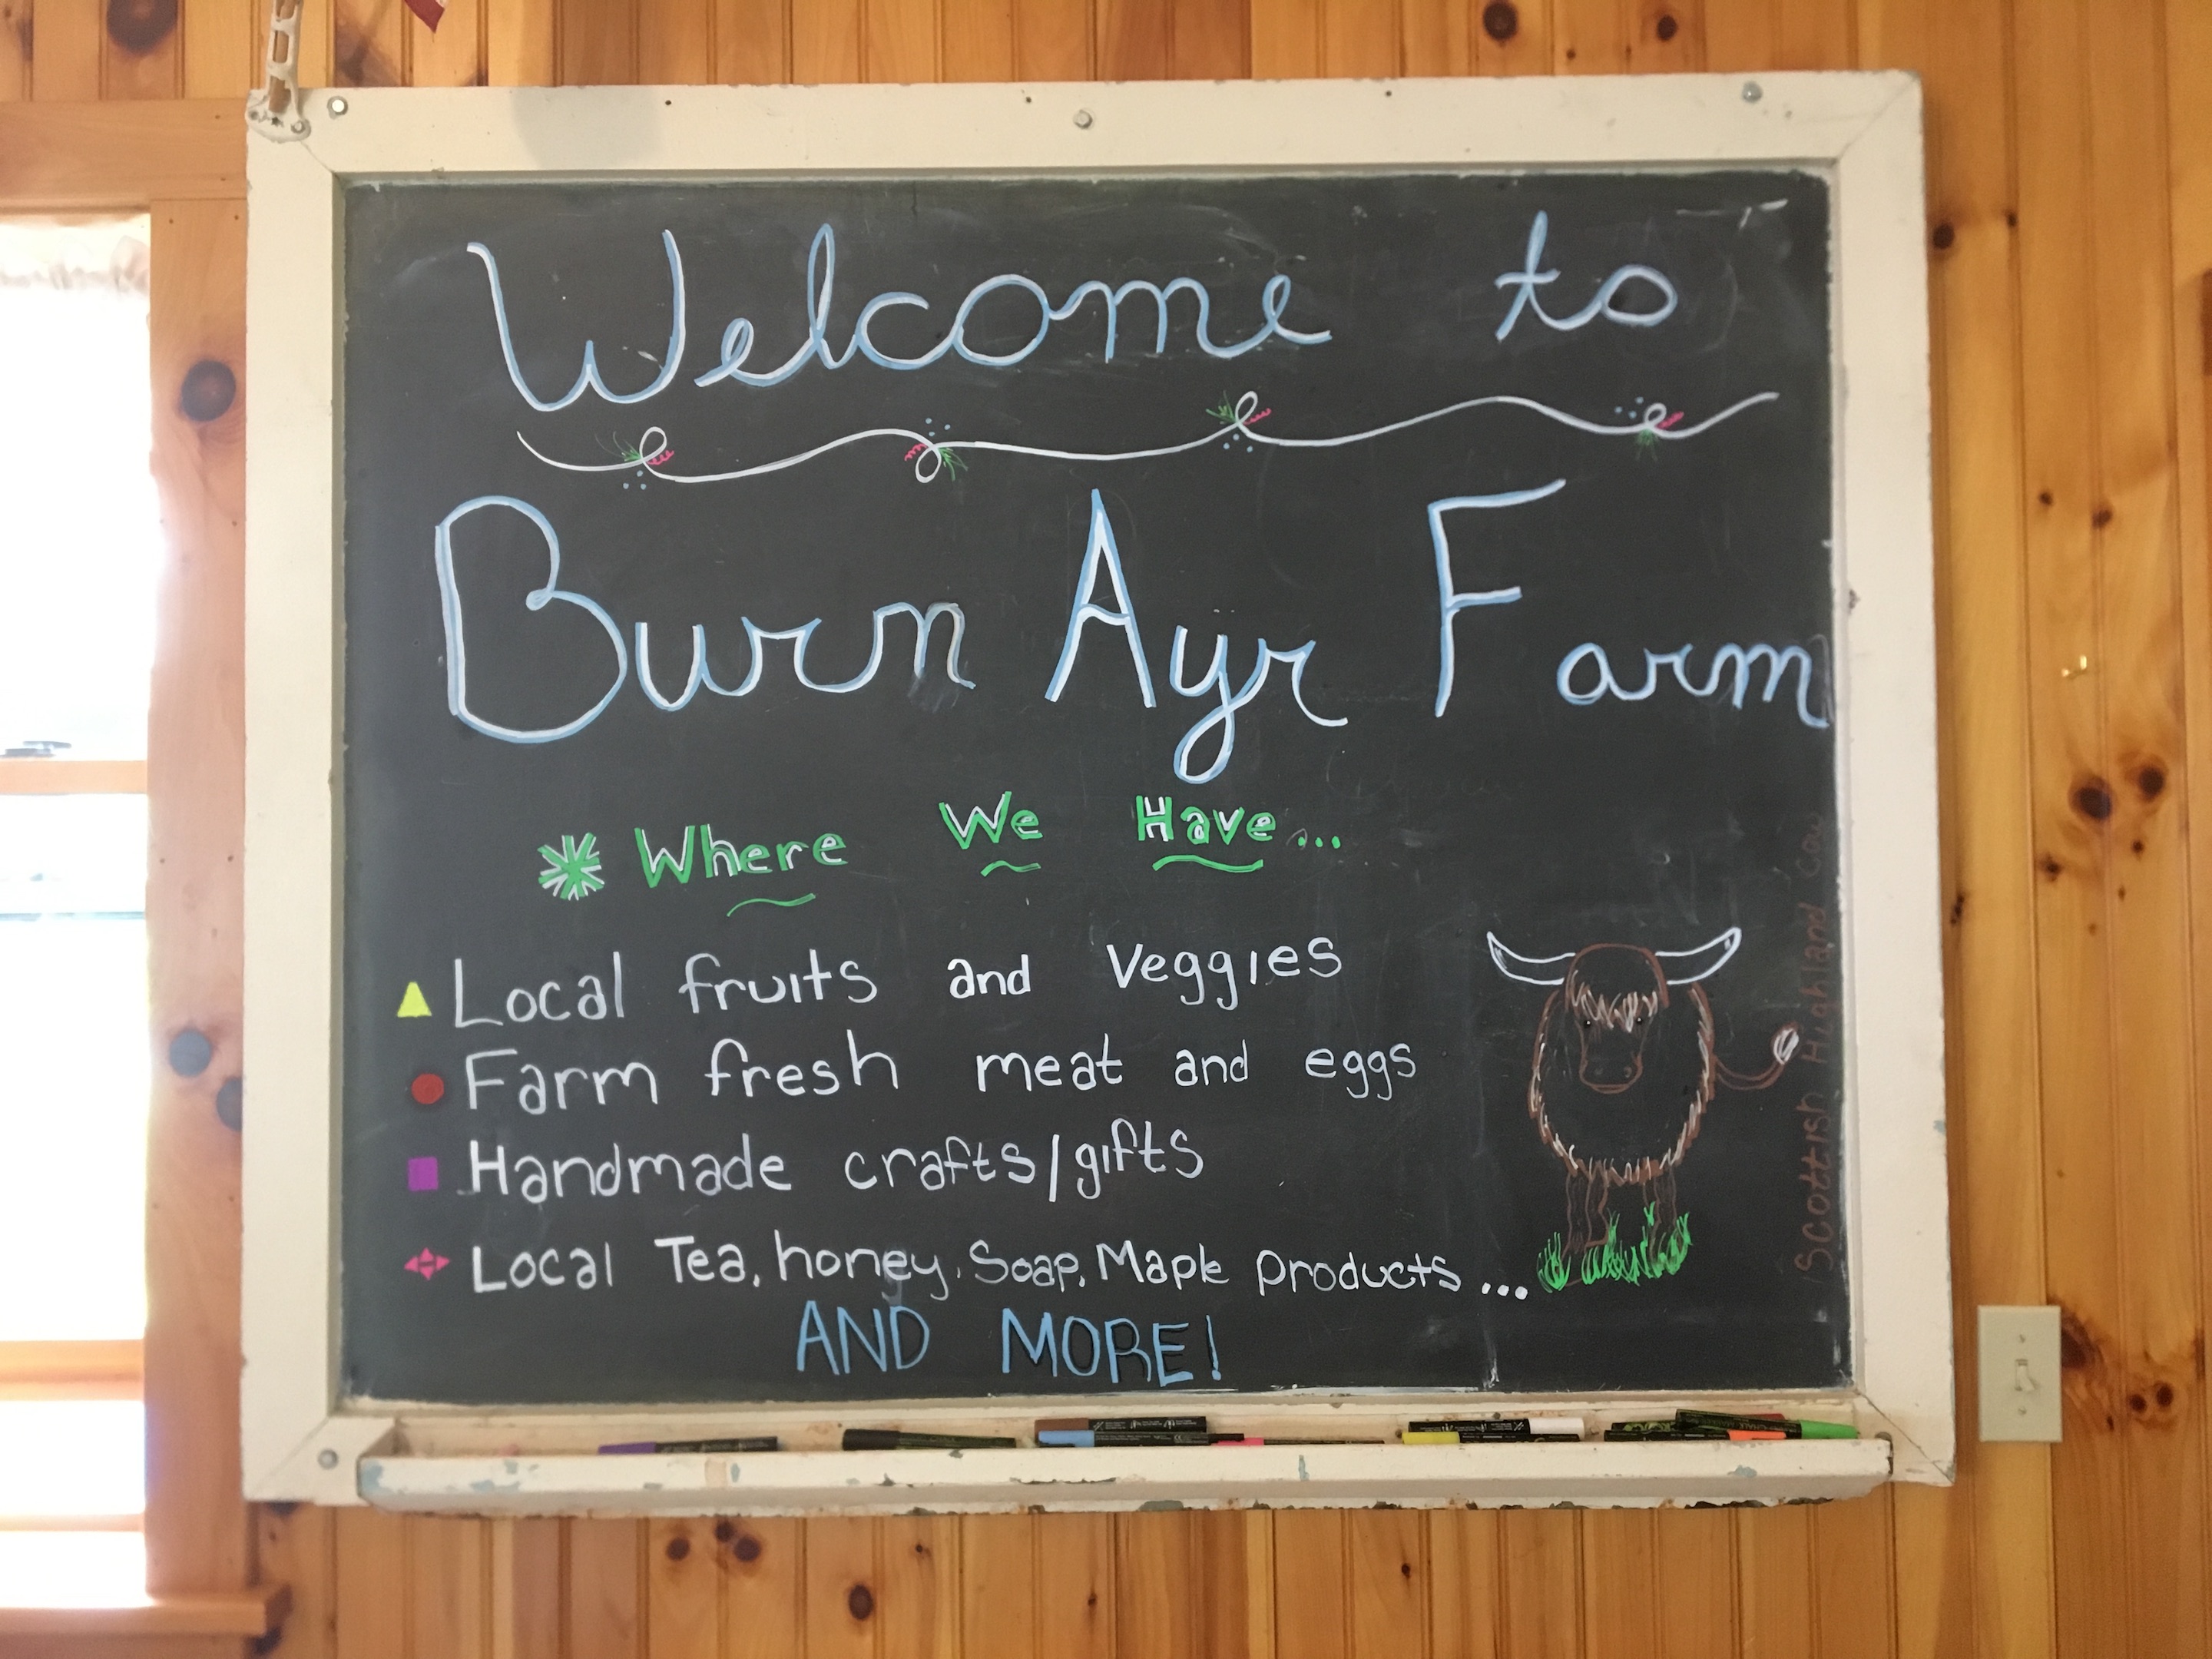 Welcome to
Burn Ayr Farm
Where We Have...
Local fruits and Veggies
Farm fresh meat and eggs
Handmade crafts/gifts
Local Tea, honey, Soap, Maple products...
AND MORE!
Scottish Highland Cow